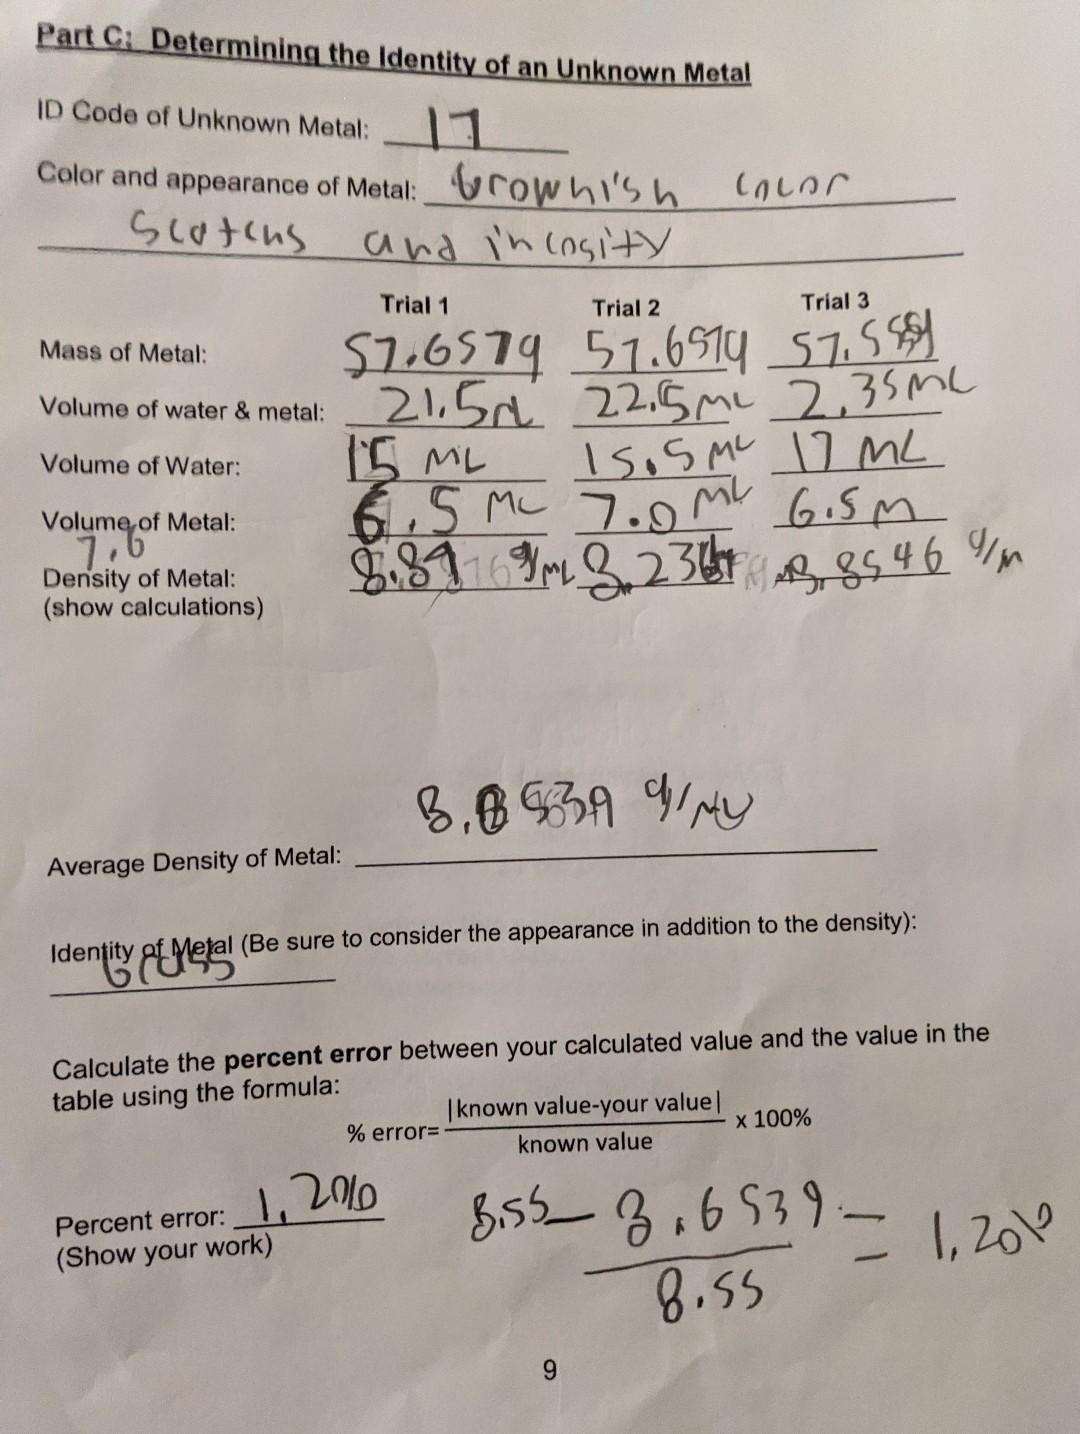 Part C: Determining the Identity of an Unknown Metal
ID Code of Unknown Metal: 17
Color and appearance of Metal: brownish color
and
Trial 1 Trial 2 Trial 3
Mass of Metal: 57.657g 57.657g
Volume of water & metal: 21.5 22.5 ML 2,35 ML
Volume of Water: 15 ML 15.5 ML 17 ML
Volume of Metal: 6.5 ML 7.0 ML 6.5 M
7.6
Density of Metal: 8.89 g/ML 8.8546 g/m
(show calculations)
g/ML
Average Density of Metal:
Identity of Metal (Be sure to consider the appearance in addition to the density):
brass
Calculate the percent error between your calculated value and the value in the
table using the formula:
% error= |known value-your value| / known value x 100%
Percent error: 1.2% 8.55 - 8.6539 = 1.2%
(Show your work) 8.55
9